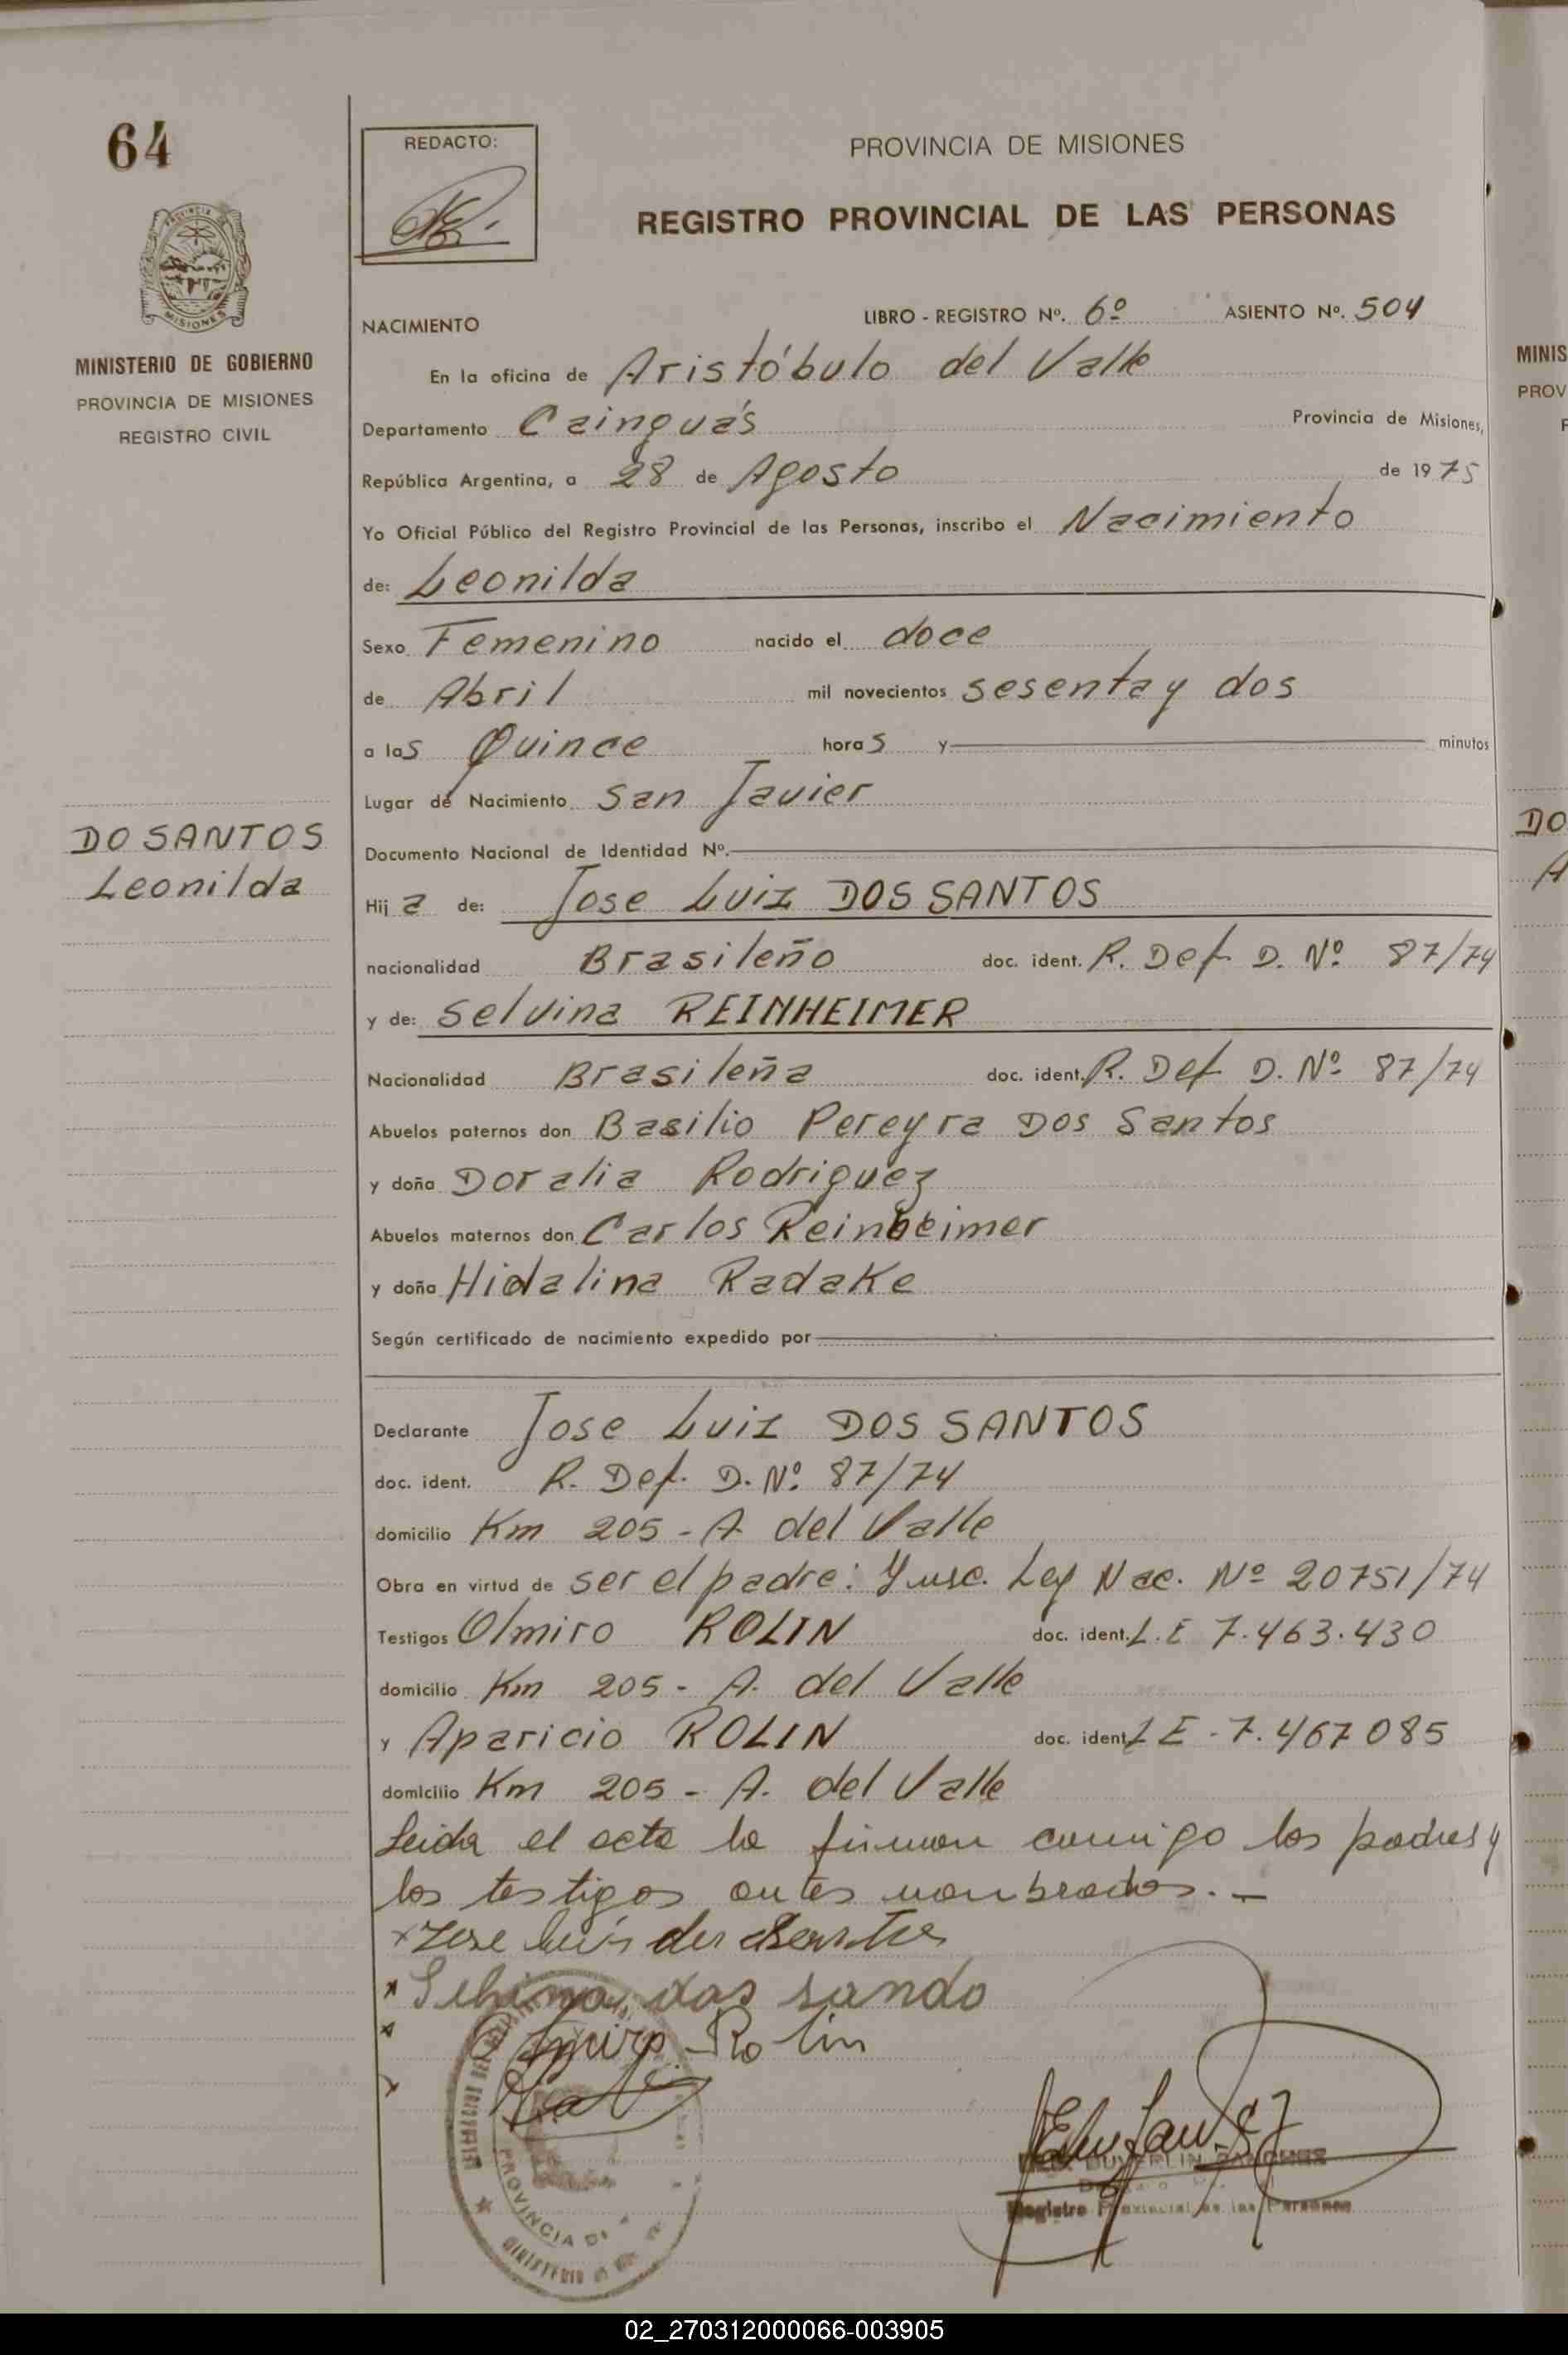 64
REDACTO:
PROVINCIA DE MISIONES
REGISTRO PROVINCIAL DE LAS PERSONAS
MISIONES
MINISTERIO DE GOBIERNO
PROVINCIA DE MISIONES
REGISTRO CIVIL
NACIMIENTO LIBRO - REGISTRO Nº. 6º ASIENTO Nº. 504
En la oficina de Aristóbulo del Valle
Departamento Cainguás Provincia de Misiones,
República Argentina, a 28 de Agosto de 1975
Yo Oficial Público del Registro Provincial de las Personas, inscribo el Nacimiento
de: Leonilda
Sexo Femenino nacido el doce
de Abril mil novecientos sesenta y dos
a las Quince horas y minutos
Lugar de Nacimiento San Javier
DO SANTOS
Leonilda
Documento Nacional de Identidad Nº.
Hija de: Jose Luiz DOS SANTOS
nacionalidad Brasileño doc. ident. R. Def. D. Nº 87/74
y de: Selvina REINHEIMER
Nacionalidad Brasileña doc. ident. R. Def D. Nº 87/74
Abuelos paternos don Basilio Pereyra Dos Santos
y doña Doralia Rodriguez
Abuelos maternos don Carlos Reinheimer
y doña Hidalina Radake
Según certificado de nacimiento expedido por
Declarante Jose Luiz DOS SANTOS
doc. ident. R. Def. D. Nº 87/74
domicilio Km 205 - A del Valle
Obra en virtud de ser el padre: Ynsc. Ley Nac. Nº 20751/74
Testigos Olmiro ROLIN doc. ident. L.E 7.463.430
domicilio Km 205 - A. del Valle
y Aparicio ROLIN doc. ident. L E - 7.467 085
domicilio Km 205 - A. del Valle
Leida el acta la firman conmigo los padres y
los testigos antes nombrados. -
x Jose Luis dos Santos
x Selvina dos sando
x Olmiro Rolin
PROVINCIA DE
MINISTERIO DE
Registro Provincial de las Personas
MINIS
PROV
DO
A
02_270312000066-003905